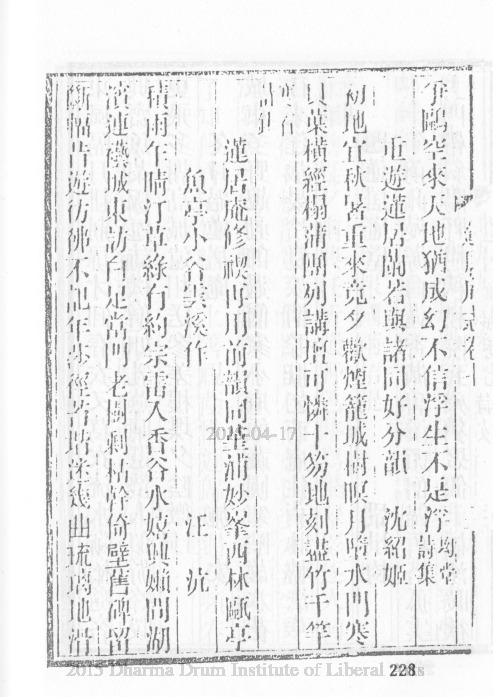 鷗空來天地猶成幻不信浮生不是浮 詩集
重遊蓮居蘭若與諸同好分韻 沈紹姬
初地宜秋暑重來竟夕歡煙籠城樹暝月晴水門寒
貝葉橫經榻蒲團列講壇可憐十笏地刻盡竹千竿
蓮居庵修禊再用前韻同 浦妙峯西林甌亭
魚亭小谷雲溪作 汪沆
積雨乍晴汀草綠有約宗雷入香谷水嬉興嬾問湖
濱連襟城東訪白足當門老樹剩枯幹倚壁舊碑留
斷幅昔遊彷彿不記年 徑苔 迷幾曲琉璃地滑
2015-04-17
228
2015 Dharma Drum Institute of Liberal Arts